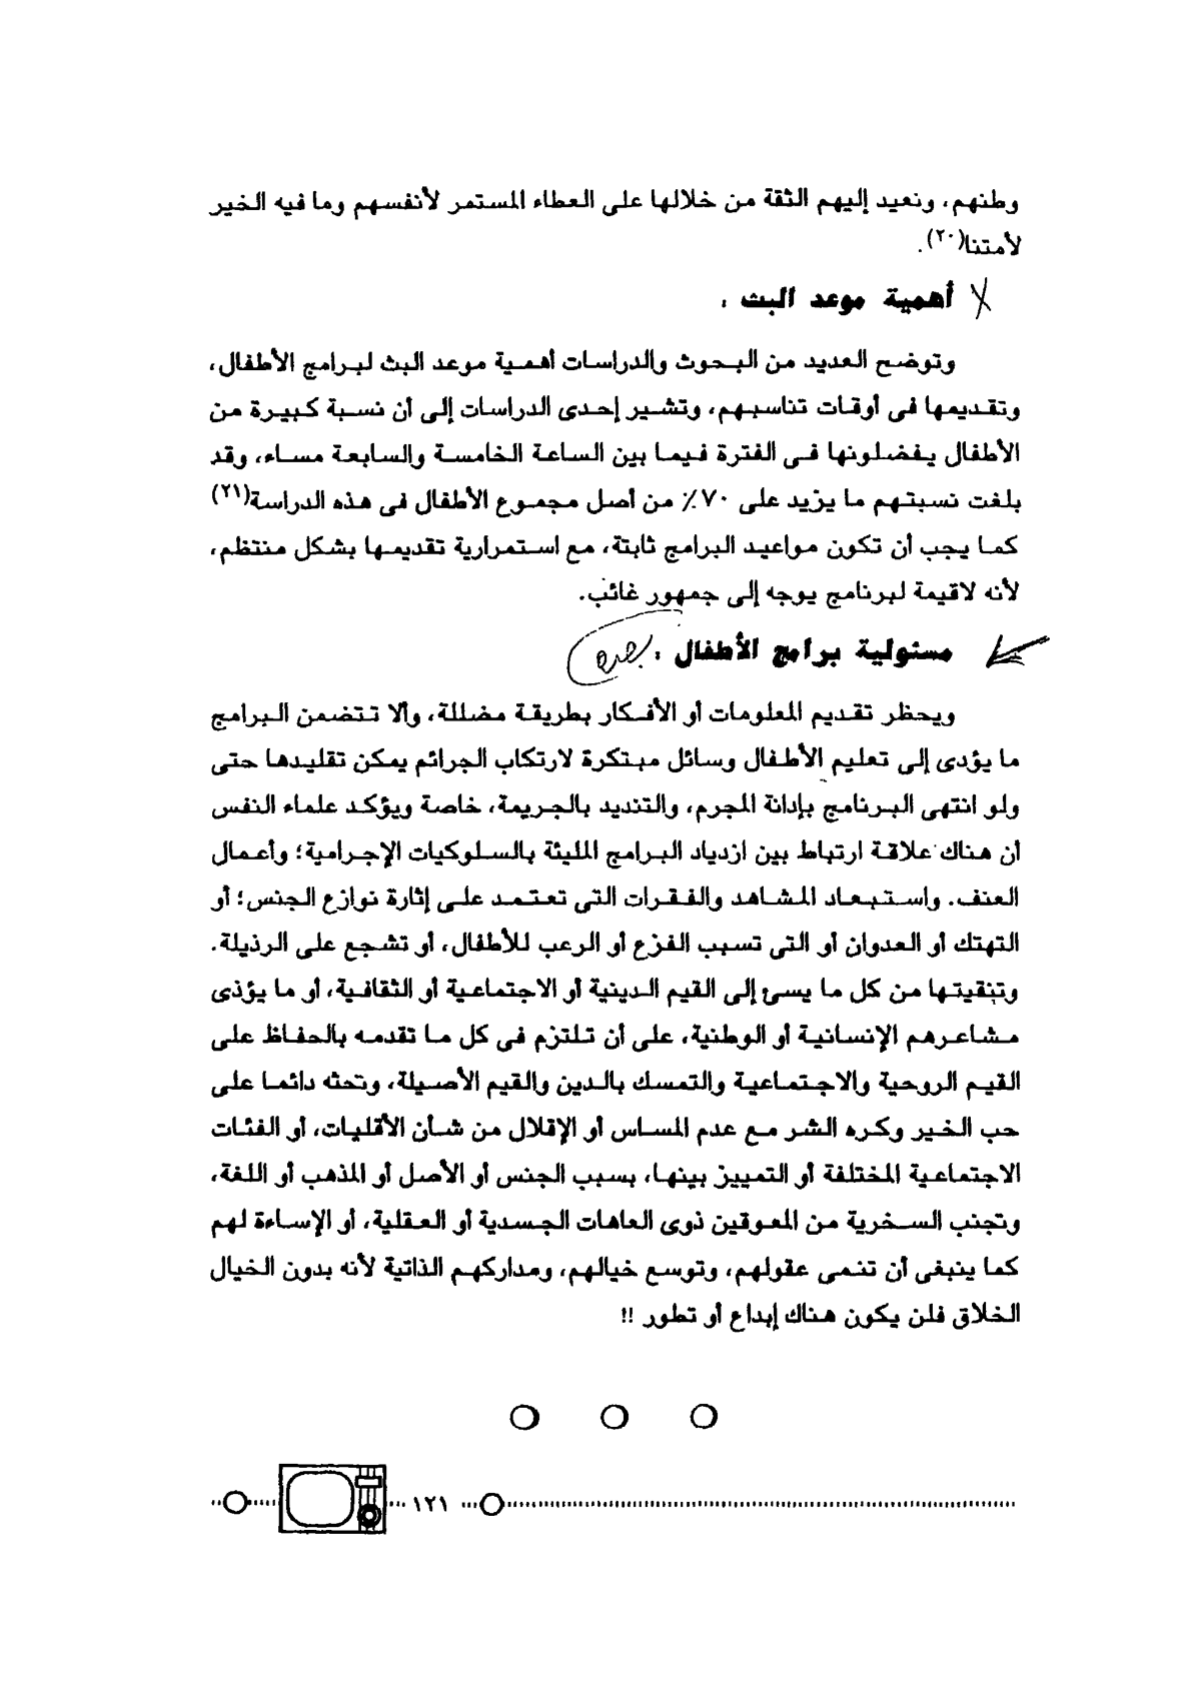 وطنهم، ونعيد إليهم الثقة من خلالها على العطاء المستمر لأنفسهم وما فيه الخير
لأمتنا(٢٠).
أهمية موعد البث :
وتوضح العديد من البحوث والدراسات أهمية موعد البث لبرامج الأطفال،
وتقديمها فى أوقات تناسبهم، وتشير إحدى الدراسات إلى أن نسبة كبيرة من
الأطفال يفضلونها فى الفترة فيما بين الساعة الخامسة والسابعة مساء، وقد
بلغت نسبتهم ما يزيد على ٧٠٪ من أصل مجموع الأطفال فى هذه الدراسة(٢١)
كما يجب أن تكون مواعيد البرامج ثابتة، مع استمرارية تقديمها بشكل منتظم،
لأنه لاقيمة لبرنامج يوجه إلى جمهور غائب.
مسئولية برامج الأطفال :
ويحظر تقديم المعلومات أو الأفكار بطريقة مضللة، وألا تتضمن البرامج
ما يؤدى إلى تعليم الأطفال وسائل مبتكرة لارتكاب الجرائم يمكن تقليدها حتى
ولو انتهى البرنامج بإدانة المجرم، والتنديد بالجريمة، خاصة ويؤكد علماء النفس
أن هناك علاقة ارتباط بين ازدياد البرامج المليئة بالسلوكيات الإجرامية؛ وأعمال
العنف. واستبعاد المشاهد والفقرات التى تعتمد على إثارة نوازع الجنس؛ أو
التهتك أو العدوان أو التى تسبب الفزع أو الرعب للأطفال، أو تشجع على الرذيلة.
وتنقيتها من كل ما يسئ إلى القيم الدينية أو الاجتماعية أو الثقافية، أو ما يؤذى
مشاعرهم الإنسانية أو الوطنية، على أن تلتزم فى كل ما تقدمه بالحفاظ على
القيم الروحية والاجتماعية والتمسك بالدين والقيم الأصيلة، وتحثه دائما على
حب الخير وكره الشر مع عدم المساس أو الإقلال من شأن الأقليات، أو الفئات
الاجتماعية المختلفة أو التمييز بينها، بسبب الجنس أو الأصل أو المذهب أو اللغة،
وتجنب السخرية من المعوقين ذوى العاهات الجسدية أو العقلية، أو الإساءة لهم
كما ينبغى أن تنمى عقولهم، وتوسع خيالهم، ومداركهم الذاتية لأنه بدون الخيال
الخلاق فلن يكون هناك إبداع أو تطور !!
١٢١